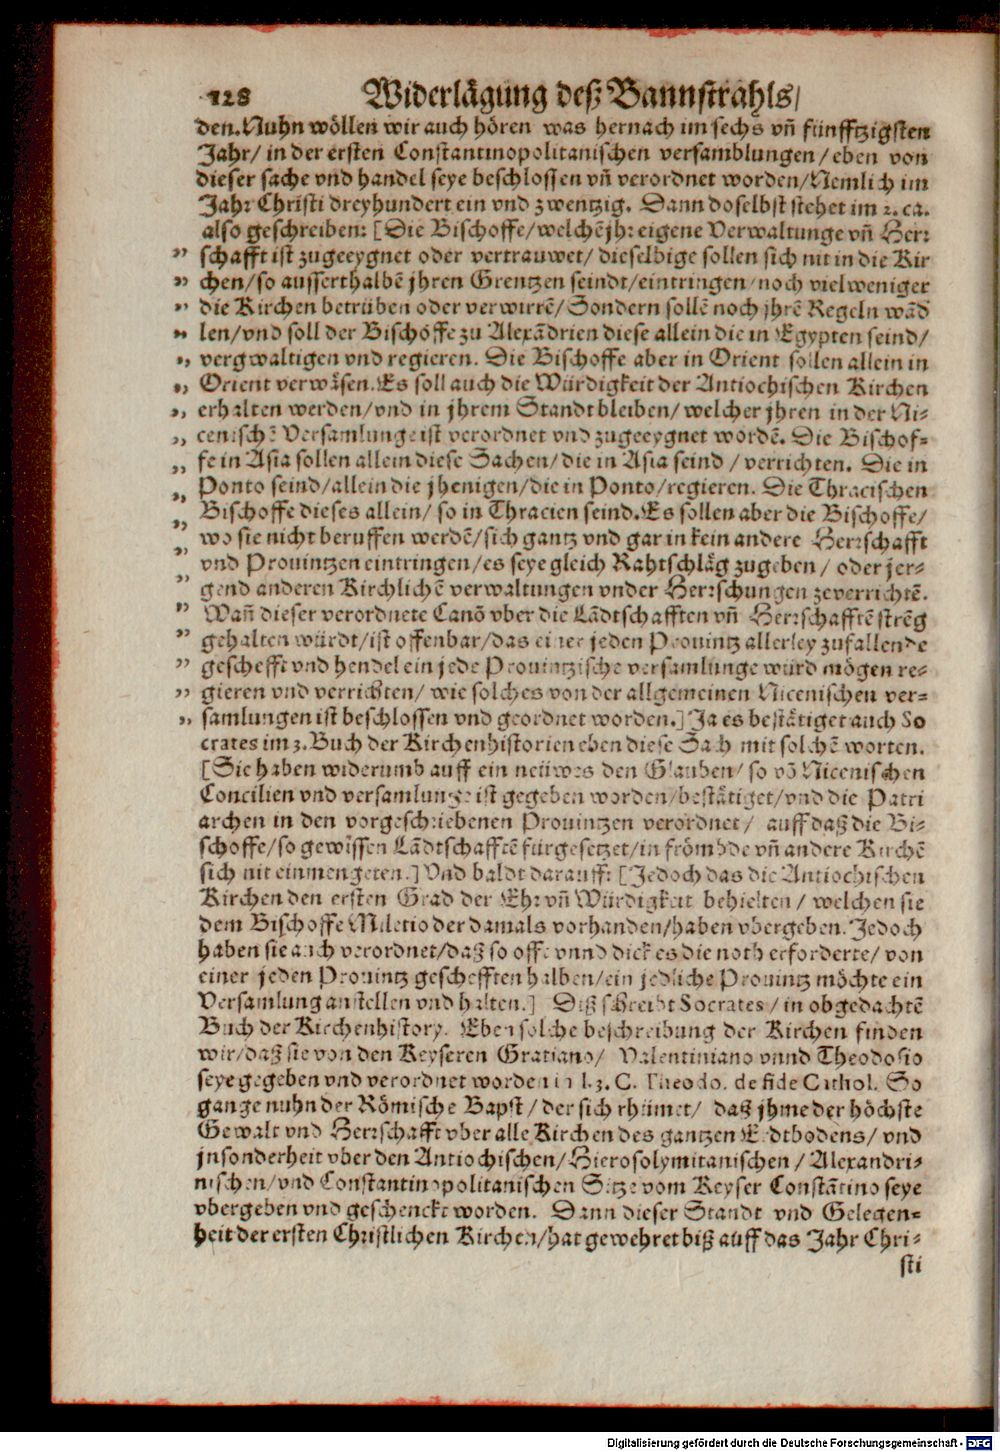 128 Widerlägung deß Bannstrahls/
den. Nuhn wöllen wir auch hören was hernach im sechs vñ fünfftzigsten
Jahr/ in der ersten Constantinopolitanischen versamblungen/ eben von
dieser sache vnd handel seye beschlossen vñ verordnet worden/ Nemlich im
Jahr Christi dreyhundert ein vnd zwentzig. Dann doselbst stehet im 2. ca.
also geschreiben: [Die Bischoffe/ welchẽ jhr eigene Verwaltunge vñ Herr
schafft ist zugeeygnet oder vertrauwet/ dieselbige sollen sich nit in die Kir
chen/ so ausserthalbẽ jhren Grentzen seindt/ eintringen/ noch viel weniger
die Kirchen betrüben oder verwirrẽ/ Sondern sollẽ noch jhrẽ Regeln wãd
len/ vnd soll der Bischöffe zu Alexãdrien diese allein die in Egypten seind/
vergwaltigen vnd regieren. Die Bischoffe aber in Orient sollen allein in
Orient verwäsen. Es soll auch die Würdigkeit der Antiochischen Kirchen
erhalten werden/ vnd in jhrem Standt bleiben/ welcher jhren in der Ni-
cenischẽ Versamlunge ist verordnet vnd zugeeygnet wordẽ. Die Bischof-
fe in Asia sollen allein diese Sachen/ die in Asia seind/ verrichten. Die in
Ponto seind/ allein die jhenigen/ die in Ponto/ regieren. Die Thracischen
Bischoffe dieses allein/ so in Thracien seind. Es sollen aber die Bischoffe/
wo sie nicht beruffen werdẽ/ sich gantz vnd gar in kein andere Herrschafft
vnd Prouintzen eintringen/ es seye gleich Rahtschläg zugeben/ oder jer-
gend anderen Kirchlichẽ verwaltungen vnder Herrschungen zeverrichtẽ.
Wañ dieser verordnete Canõ vber die Lãdtschafften vñ Herrschafftẽ strẽg
gehalten würdt/ ist offenbar/ das einer jeden Prouintz allerley zufallende
geschefft vnd hendel ein jede Prouintzische versamlunge würd mögen re-
gieren vnd verrichten/ wie solches von der allgemeinen Nicenischen ver-
samlungen ist beschlossen vnd geordnet worden.] Ja es bestätiget auch So
crates im 3. Buch der Kirchenhistorien eben diese Sach mit solchẽ worten.
[Sie haben widerumb auff ein neüwes den Glauben/ so võ Nicenischen
Concilien vnd versamlunge ist gegeben worden/ bestätiget/ vnd die Patri
archen in den vorgeschriebenen Prouintzen verordnet/ auff daß die Bi-
schoffe/ so gewissen Lãdtschafftẽ fürgesetzet/ in frömbde vñ andere Kirchẽ
sich nit einmengeten.] Vnd baldt darauff: [Jedoch das die Antiochischen
Kirchen den ersten Grad der Ehr vñ Würdigkeit behielten/ welchen sie
dem Bischoffe Miletio der damals vorhanden/ haben vbergeben. Jedoch
haben sie auch verordnet/ daß so offe vnnd dick es die noth erforderte/ von
einer jeden Prouintz geschefften halben/ ein jedliche Prouintz möchte ein
Versamlung anstellen vnd halten.] Diß schreibt Socrates/ in obgedachtẽ
Buch der Kirchenhistory. Eben solche beschreibung der Kirchen finden
wir/ daß sie von den Keyseren Gratiano/ Valentiniano vnnd Theodosio
seye gegeben vnd verordnet worden in l. 3. C. Theodo. de fide Cathol. So
gange nuhn der Römische Bapst/ der sich rhümet/ daß jhme der höchste
Gewalt vnd Herrschafft vber alle Kirchen des gantzen Erdtbodens/ vnd
jnsonderheit vber den Antiochischen/ Hierosolymitanischen/ Alexandri-
nischen/ vnd Constantinopolitanischen Sitze vom Keyser Constãtino seye
vbergeben vnd geschenckt worden. Dann dieser Standt vnd Gelegen-
heit der ersten Christlichen Kirchen/ hat gewehret biß auff das Jahr Chri-
sti
Digitalisierung gefördert durch die Deutsche Forschungsgemeinschaft - DFG